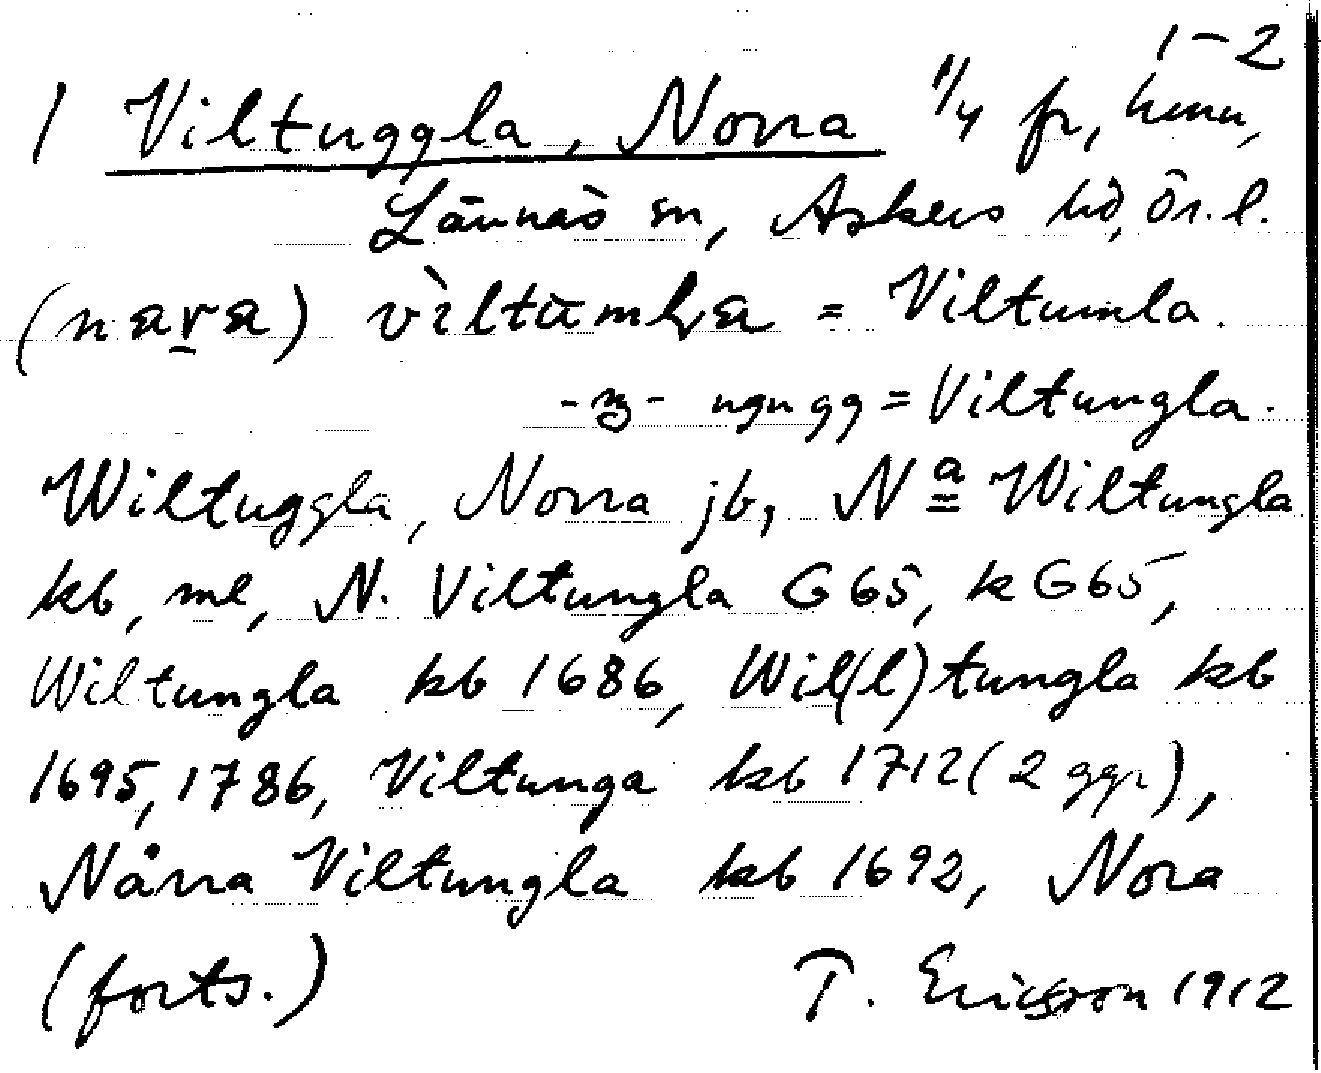 1–2
1 Viltuggla, Norra 1/4 fr, hmn,
Lännäs sn, Askers hd, Ör. l.
(nara) vìltumla = Viltumla.
-ŋ- ngn gg = Viltungla.
Wiltuggla, Norra jb, Nª Wiltungla
kb, ml, N. Viltungla G 65, k G 65,
Wiltungla kb 1686, Wil(l)tungla kb
1695, 1786, Viltunga kb 1712 (2 ggr),
Nårra Viltungla kb 1692, Nora
(forts.) T. Ericsson 1912